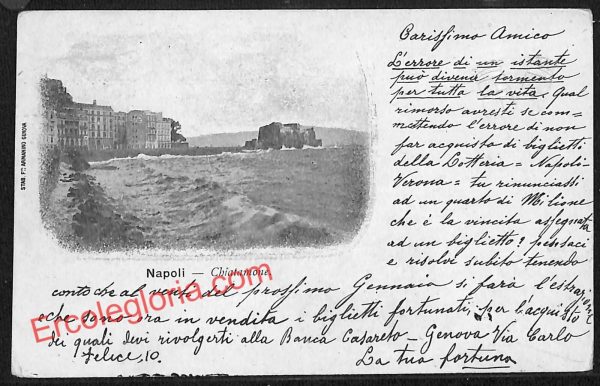 Carissimo Amico
L'errore di un istante
può divenir tormento
per tutta la vita. Qual
rimorso avresti se com-
mettendo l'errore di non
far acquisto di biglietti
della Lotteria = Napoli-
Verona = tu rinunciassi
ad un quarto di Milione
che è la vincita assegnata
ad un biglietto? pensaci
e risolvi subito tenendo
STAB. F.lli ARMANINO GENOVA
Napoli — Chiatamone
conto che al venti del prossimo Gennaio si farà l'estrazione
e che sono ora in vendita i biglietti fortunati, per l'acquisto
dei quali devi rivolgerti alla Banca Casareto — Genova Via Carlo
Felice, 10.
La tua fortuna
Ercolegloria.com